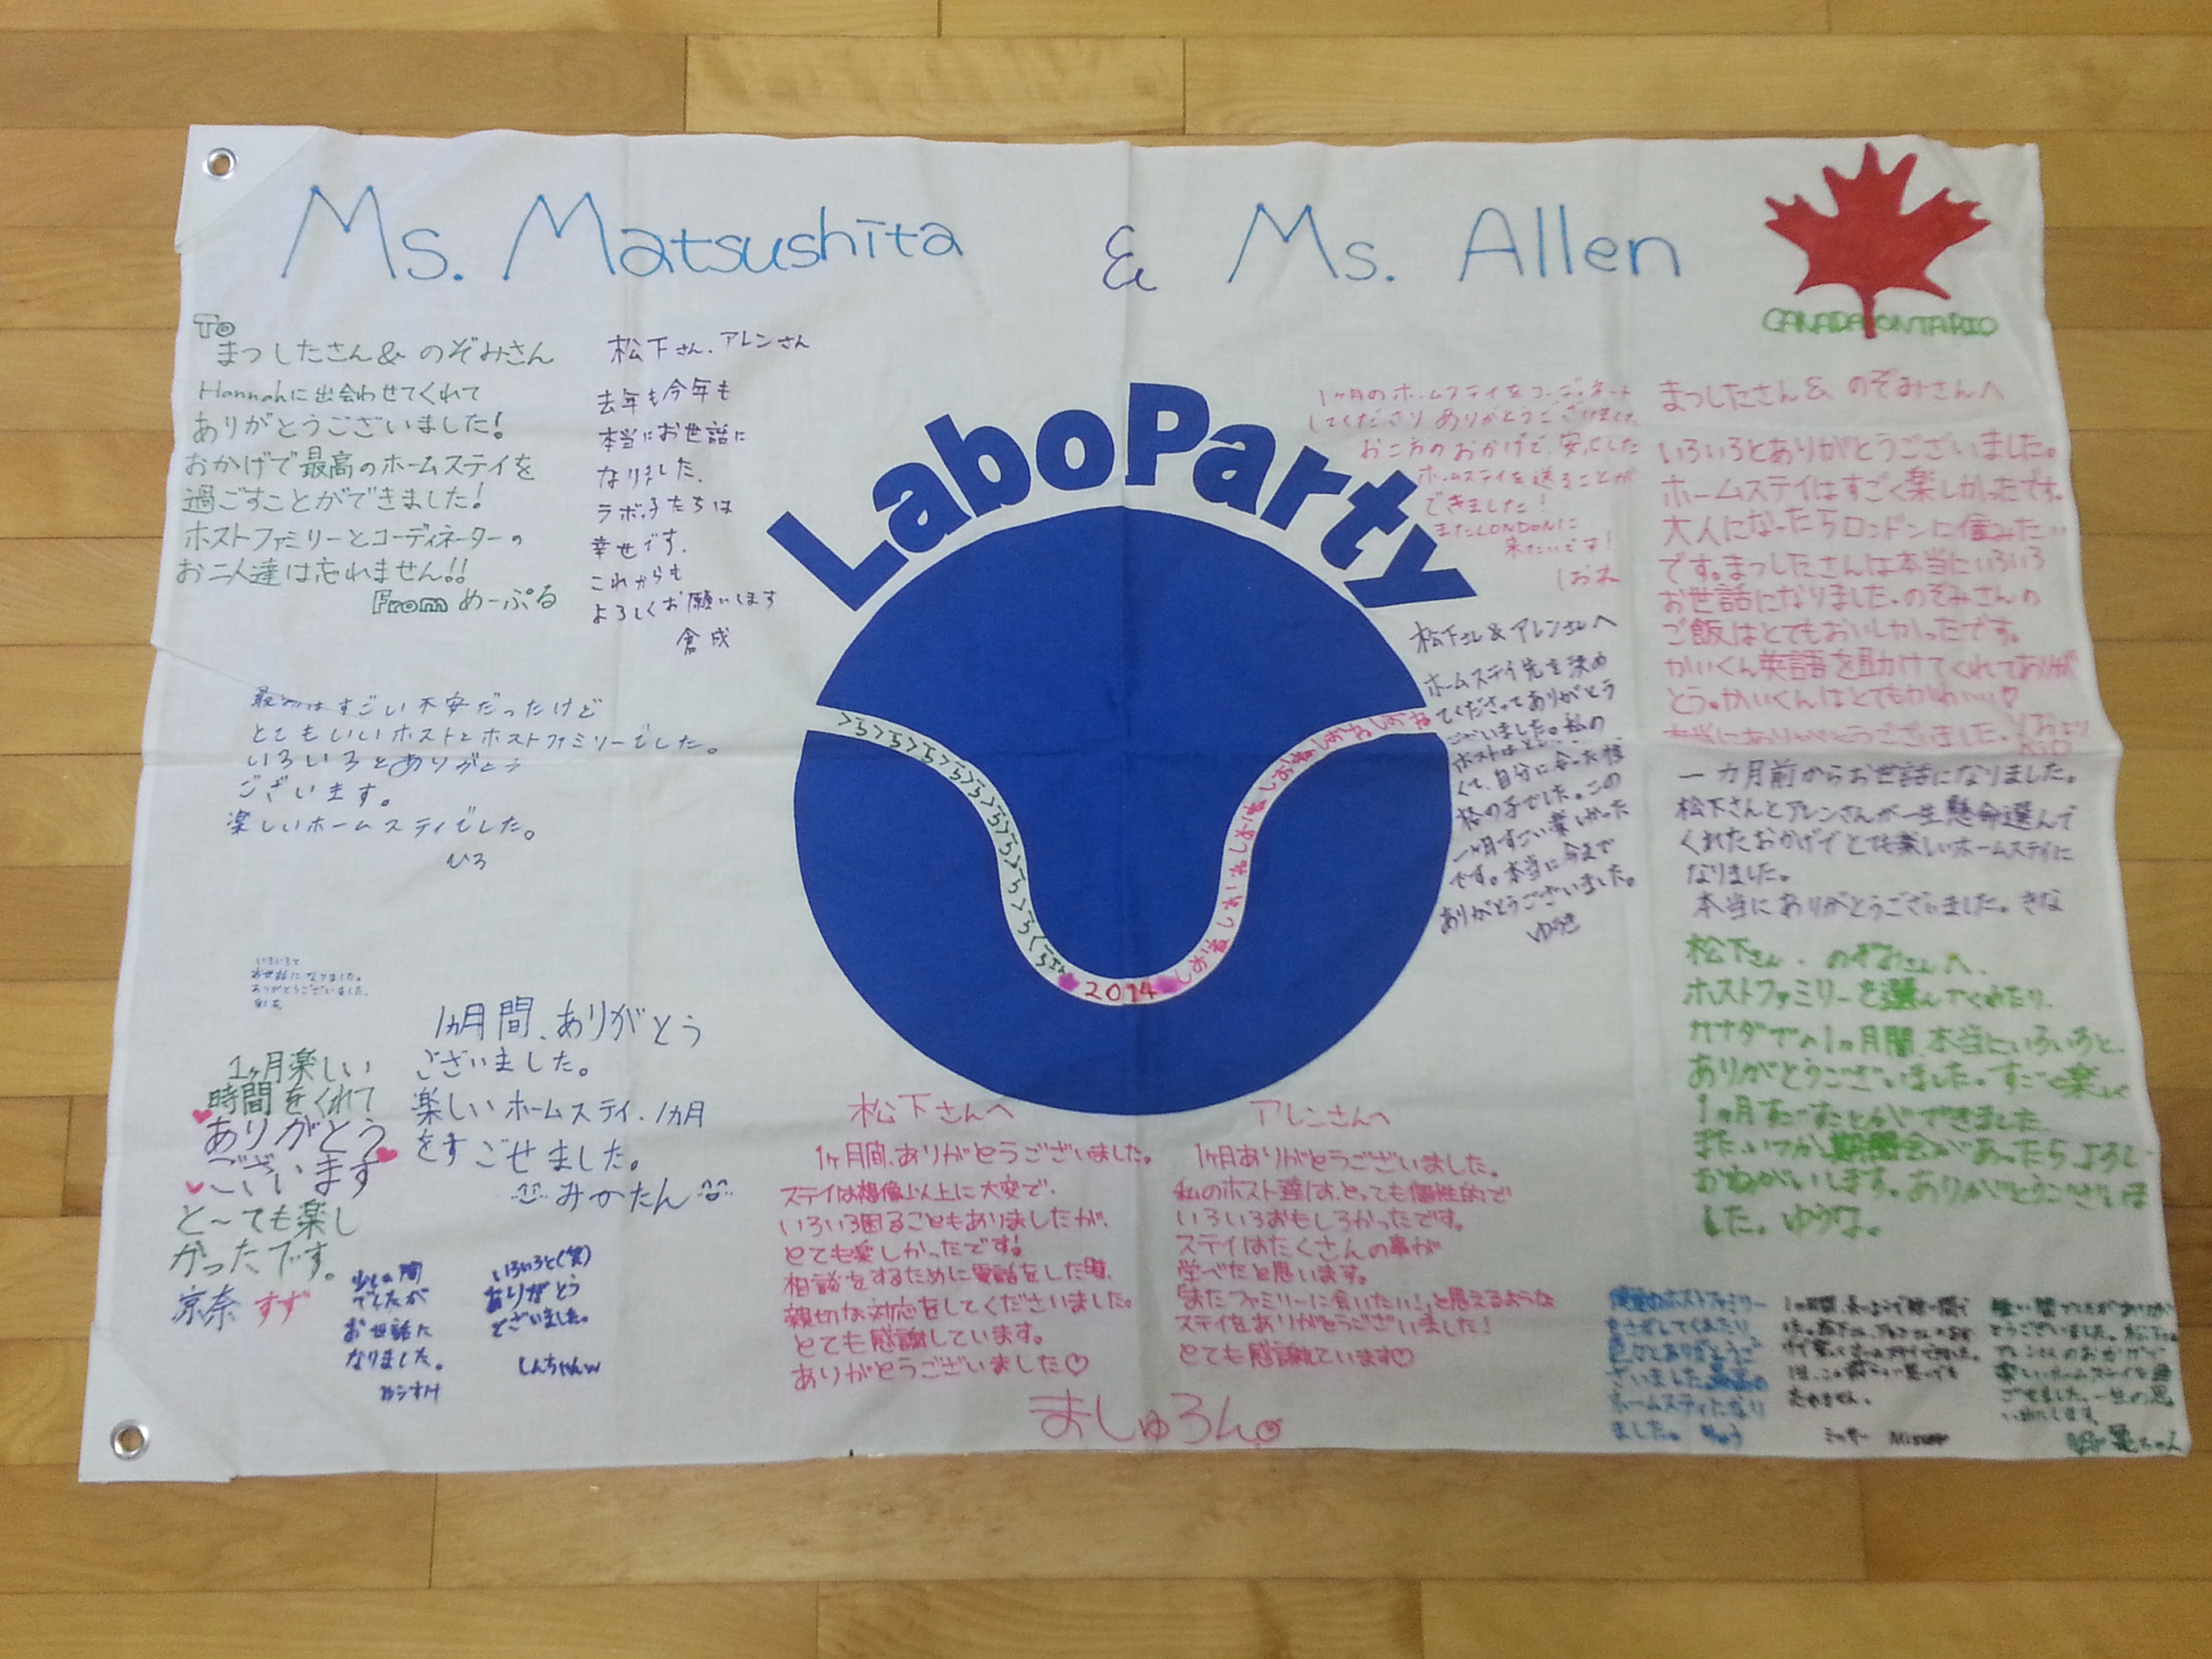 Ms. Matsushita & Ms. Allen
CANADA ONTARIO
To
まつしたさん& のぞみさん
Hannahに出会わせてくれて
ありがとうございました!
おかげで最高のホームステイを
過ごすことができました!
ホストファミリーとコーディネーターの
お二人達は忘れません!!
From めーぷる
松下さん、アレンさん
去年も今年も
本当にお世話に
なりました、
ラボっ子たちは
幸せです.
これからも
よろしくお願いします
倉成
LaboParty
2014
1ヶ月のホームステイをコーディネート
してくださり ありがとうございました
お二方のおかげで、安心した
ホームステイを送ることが
できました!
またLONDONに
来たいです!
しおね
まつしたさん& のぞみさんへ
いろいろとありがとうございました。
ホームステイはすごく楽しかったです。
大人になったらロンドンに住みたい
です。まつしたさんは本当にいろいろ
お世話になりました。のぞみさんの
ご飯はとてもおいしかったです。
かいくん英語を助けてくれてありが
とう。かいくんはとてもかわいい♡
本当にありがとうございました。
松下さん&アレンさんへ
ホームステイ先を決め
てくださってありがとう
ございました。私の
くて、自分に合った性
格の子でした。この
一ヶ月すごい楽しかった
です。本当に今まで
ありがとうございました。
ゆうき
最初はすごい不安だったけど
とてもいいホストとホストファミリーでした。
いろいろとありがとう
ございます。
楽しいホームステイでした。
ひろ
一カ月前からお世話になりました。
松下さんとアレンさんが一生懸命選んで
くれたおかげでとても楽しいホームステイに
なりました。
本当にありがとうございました。きな
松下さん、のぞみさんへ.
ホストファミリーを選んでくれたり、
カナダでの1ヶ月間、本当にいろいろと、
ありがとうございました。すごく楽しく
1ヶ月すごすことができました
また、いつか機会があったらよろしく
おねがいします。ありがとうございま
した。ゆうな。
いろいろと
お世話になりました。
ありがとうございました。
1ヵ月間、ありがとう
ございました。
楽しいホームステイ、1ヵ月
をすごせました。
みかたん
1ヶ月楽しい
時間をくれて
ありがとう
ございます
と〜ても楽し
かったです。
京奈 すず
少しの間
でしたが
お世話に
なりました。
いろいろと(笑)
ありがとう
ございました。
しんちゃんw
松下さんへ
1ヶ月間、ありがとうございました。
ステイは想像以上に大変で、
いろいろ困ることもありましたが、
とても楽しかったです!
相談をするために電話をした時、
親切な対応をしてくださいました。
とても感謝しています。
ありがとうございました♡
アレンさんへ
1ヶ月ありがとうございました。
私のホスト達は、とっても個性的で
いろいろおもしろかったです。
ステイはたくさんの事が
学べたと思います。
「またファミリーに会いたい!」と思えるような
ステイをありがとうございました!
とても感謝しています♡
ましゅろん。
ホストファミリー
をさがしてくれたり
色々とありがとうご
ざいました。最高の
ホームステイになり
ました。 りゅう
忘れません。
ミッサー Misser
とうございました。松下さん
アレンさんのおかげで
楽しいホームステイを過
ごせました。一生の思
い出にします。
亀ちゃん